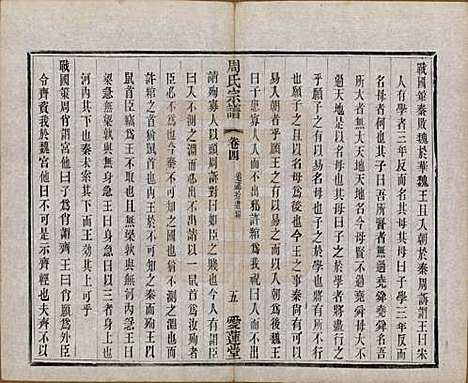 戰國策秦敗魏於華魏王且入朝於秦周訴謂王曰宋
人有學者三年反而名其母其母曰子學三年反而
名我者何也其子曰吾所賢者無過堯舜堯舜名吾
所大者無大天地天地名今母賢不過堯舜母大不
過天地是以名母也其母曰子之於學也將盡行之
乎願子之有以易名母也子之於學也將有所不行
乎願子之且以名母爲後也今王之事秦尚有可以
易入朝者乎願王之有以易之而以入朝爲後魏王
曰子患寡人入而不出邪許綰爲我祝曰入而不出
請殉寡人以頭周訴對曰如臣之賤也今人有謂臣
曰入不測之淵而必出不出請以一鼠首爲女殉者
臣必不爲也今秦不可知之國也猶不測之淵也而
許綰之首猶鼠首也內王於不可知之秦而殉王以
鼠首臣竊爲王不取也且無梁孰與無河內急王曰
梁急無梁孰與無身急王曰身急曰以三者身上也
河內其下也秦未索其下而王效其上可乎
戰國策周肖謂宮他曰子爲肖謂齊王曰肖願爲外臣
令齊資我於魏宮他曰不可是示齊輕也夫齊不以
周氏宗譜
卷四
五
愛蓮堂